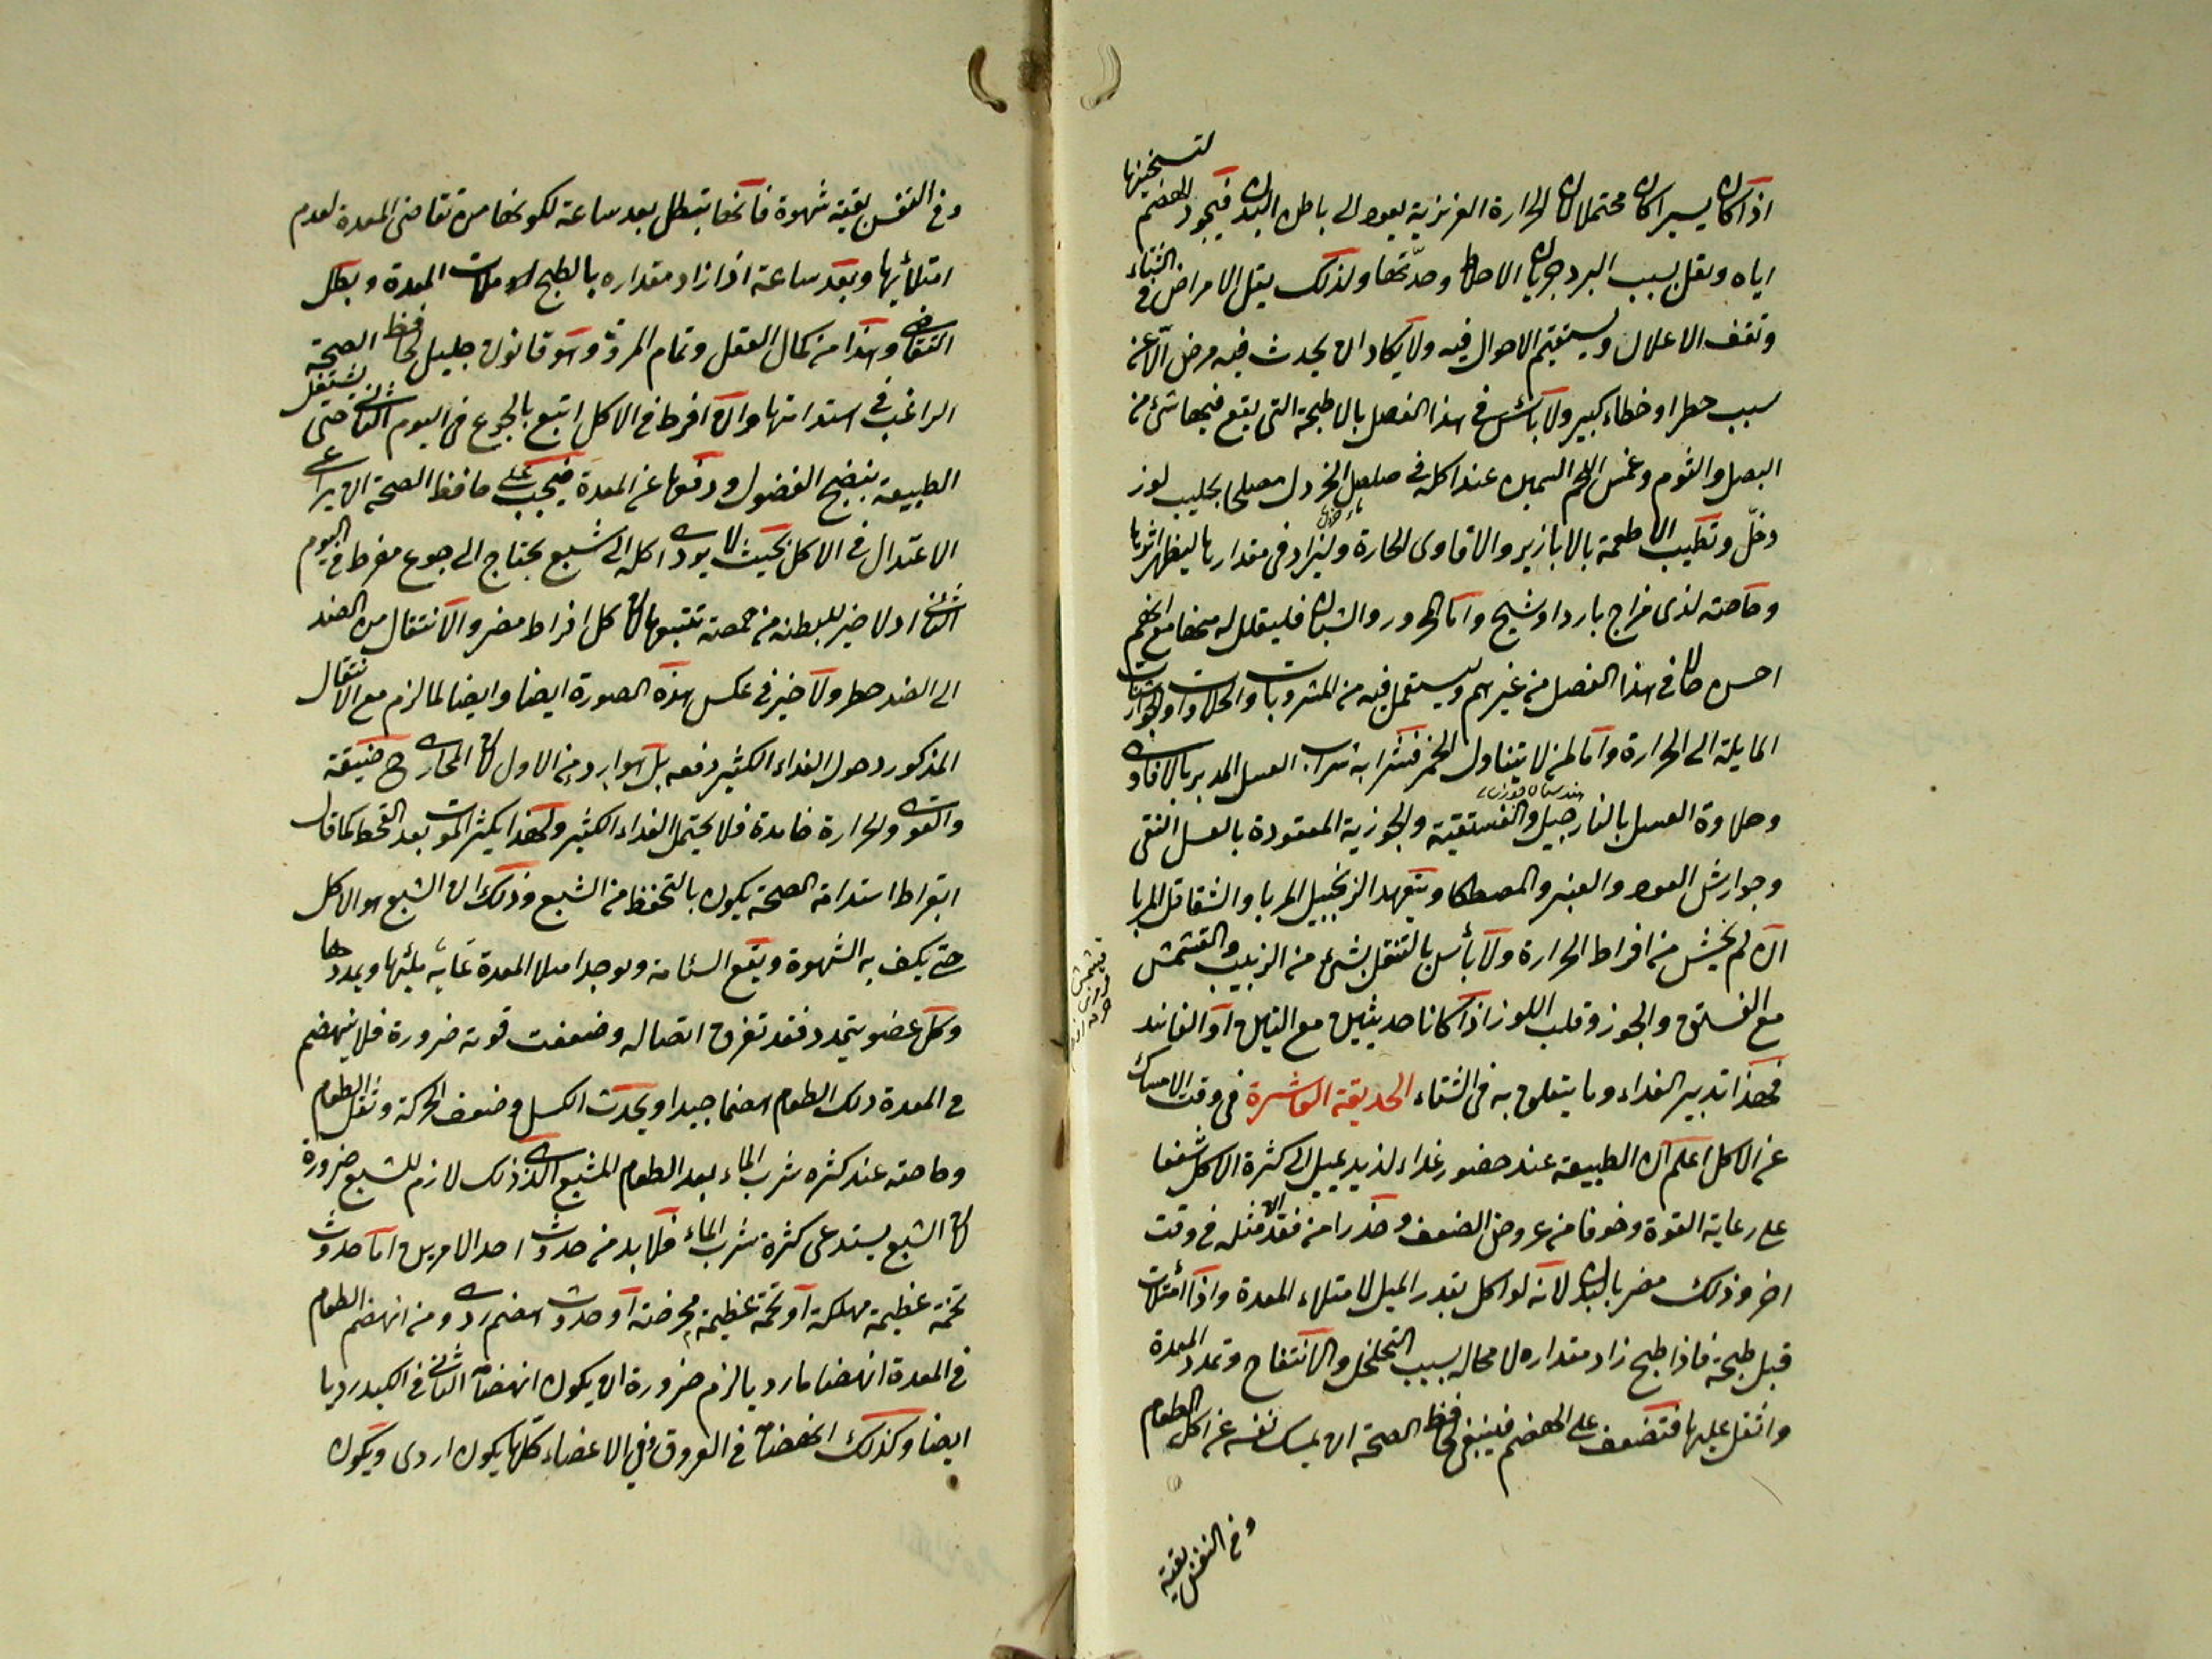 اذا كان يسيرا كان محتملا لان الحرارة الغريزية يعود الى باطن البدن فيجود الهضم لتسخينها
اياه ويقل بسبب البرد جريان الاخلاط وحدّتها ولذلك يقل الامراض فى الشتاء
وتقف الاعلال ويستقيم الاحوال فيه ولا يكاد ان يحدث فيه مرض الّا عن
سبب خطر او خطاء كبير ولا بأس فى هذا الفصل بالاطبخة التى يقع فيها شئ من
البصل والثوم وغمس اللحم السمين عند اكله فى الخردل مصلحا بحليب لوز
وخلّ وتطييب الاطعمة بالابازير والافاوى الحارة وليزاد فى مقدارها ليظهر اثرها
وخاصة لذى مزاج بارد او شيخ واما المحرور والشبان فليقلل له منها مع انهم
احسن حالا فى هذا الفصل من غيرهم ويستعمل فيه من المشروبات والحلاوات والجوارشنات
المايلة الى الحرارة واما لمن لا يتناول الخمر فشرابه شراب العسل المدبر بالافاوى
وحلاوة العسل بالنارجيل والفستقية والجوزية المعقودة بالعسل النقى
وجوارش العود والعنبر والمصطكا ويتعهد الزنجبيل المربا والشقاقل المربا
ان لم يخش من افراط الحرارة ولا بأس بالتنقل بشئ من الزبيب والقشمش
مع الفستق والجوز وقلب اللوز اذا كانا حديثين مع التين او الفانيد
فهذا تدبير الغذاء وما يتعلق به فى الشتاء الحديقة العاشرة فى وقت الامساك
عن الاكل اعلم ان الطبيعة عند حضور غذاء لذيد يميل الى كثرة الاكل شغفا
على رعاية القوة وخوفا من عروض الضعف وحذرا من فقدان مثله فى وقت
اخر وذلك مضر بالبدن لانه لو اكل بقدر الميل لامتلاء المعدة واذا امتلات
قبل طبخه فاذا طبخ زاد مقداره لا محاله بسبب التخلخل والانتفاخ وتمدد المعدة
واثقل عليها فتضعف على الهضم فينبغى لحافظ الصحة ان يمسك نفسه عن اكل الطعام
وفى النفس بقية
وفى النفس بقية شهوة فانها يتبطل بعد ساعة لكونها من تقاضى المعدة لعدم
امتلائها وبعد ساعة اذا زاد مقداره بالطبخ امتلات المعدة وبطل
التقاضى وهذا من كمال العقل وتمام المروة وهو قانون جليل لحافظ الصحة
الراغب فى استدامتها وان افرط فى الاكل اتبع بالجوع فى اليوم الثانى حتى يشتغل
الطبيعة بنضج الفضول ودفعها عن المعدة فيجب على حافظ الصحة ان يراعى
الاعتدال فى الاكل بحيث لا يودى اكله الى شبع يحتاج الى جوع مفرط فى اليوم
الثانى اذ لا خير للبطنه من خمصة تتبعها لان كل افراط مضر والانتقال من الضد
الى الضد خطر ولا خير فى عكس هذه الصورة ايضا وايضا لما لزم مع الانتقال
المذكور دخول الغذاء الكثير دفعه بل هو اردء من الاول لان المجارى ح ضيقة
والقوى والحرارة خامدة فلا يحتمل الغذاء الكثير ولهذا يكثر الموت بعد القحط كما قال
ابقراط استدامة الصحة يكون بالتحفظ من الشبع وذلك ان الشبع هو الاكل
حتى يكف به الشهوة ويقع السئامة ويوجد امتلا المعدة غاية يملئها ويمددها
وكل عضو يتمدد فقد تفرق اتصاله وضعفت قوته ضرورة فلا ينهضم
فى المعدة ذلك الطعام هضما جيدا ويحدث الكسل وضعف الحركة وثقل الطعام
وخاصة عند كثره شرب الماء بعد الطعام المشبع الذى ذلك لازم للشبع ضرورة
لان الشبع يستدعى كثرة شرب الماء فلا بد من حدوث احد الامرين اما حدوث
تخمة عظيمة مهلكة او تخمة عظيمة ممرضة او حدوث هضم ردى ومن انهضم الطعام
فى المعدة انهضاما رديا لزم ضرورة ان يكون انهضامه الثانى فى الكبد رديا
ايضا وكذلك انهضامه فى العروق وفى الاعضاء كلها يكون اردى ويكون